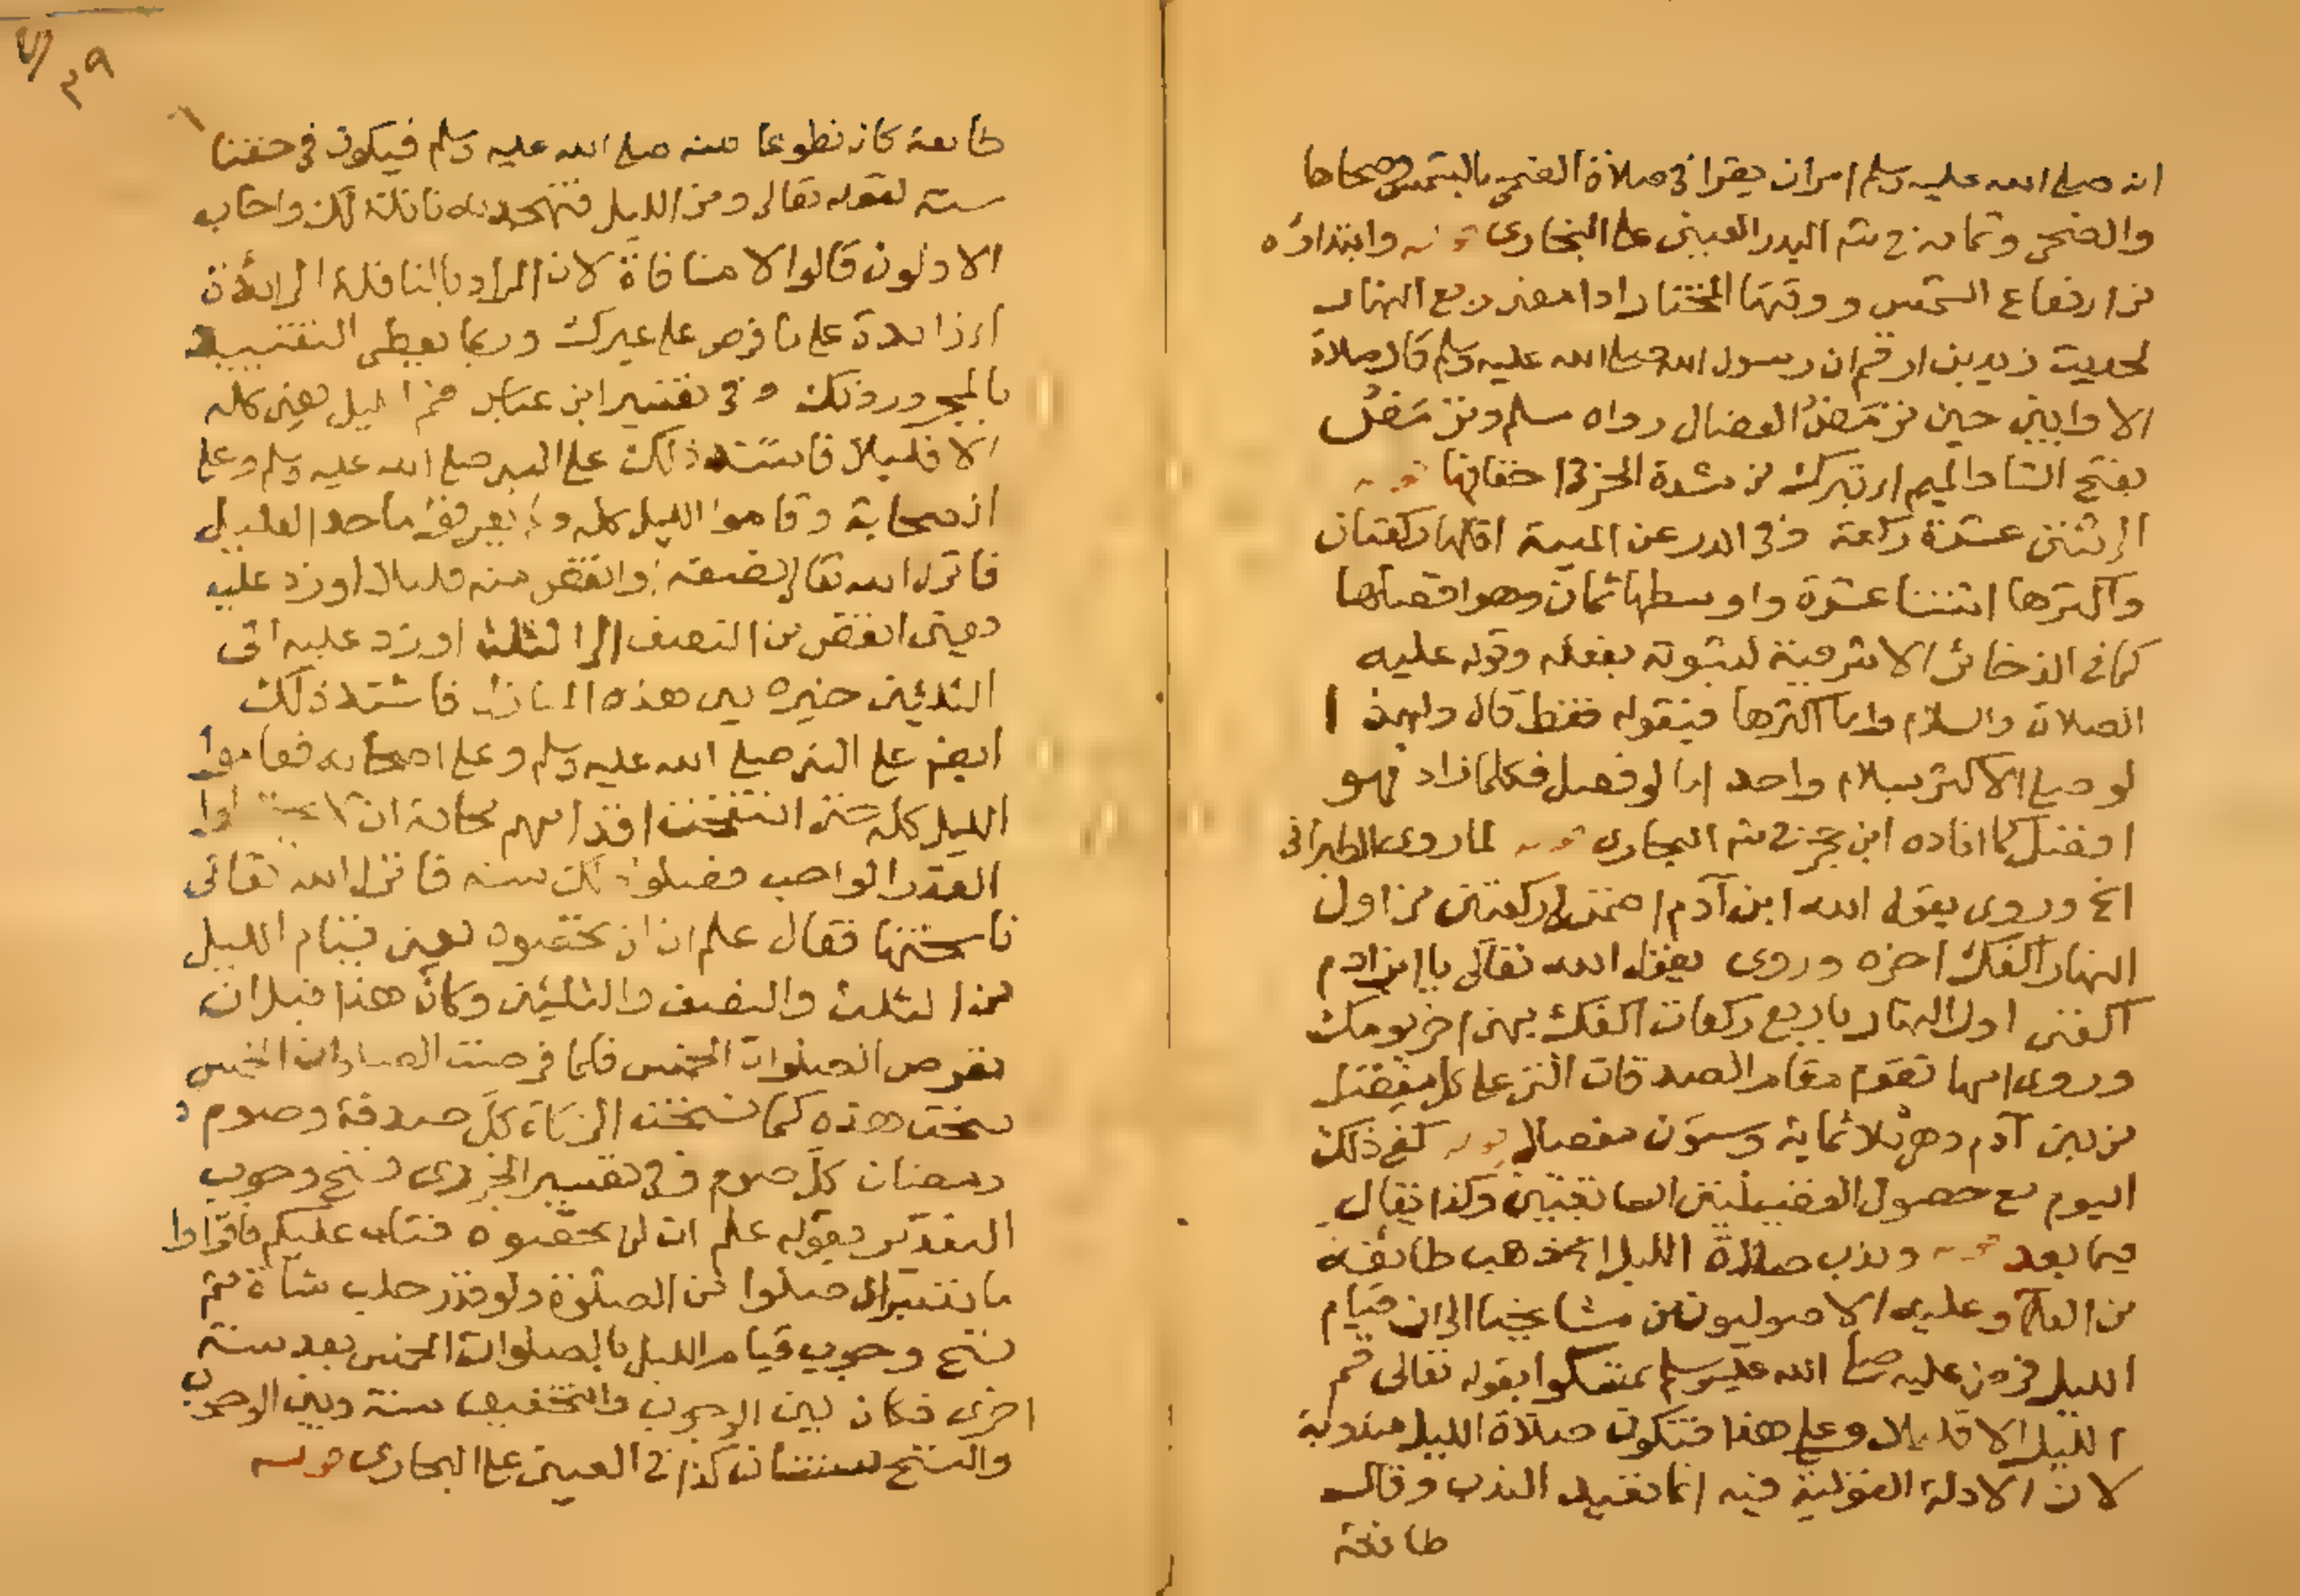 انه صلى الله عليه وسلم امر ان يقرا في صلاة الضحى بالشمس وضحاها
والضحى وتمامه في شر البدر العيني على البخاري قوله وابتداؤه
من ارتفاع الشمس ووقتها المختار اذا مضى ربع النهار
لحديث زيد بن ارقم ان رسول الله صلى الله عليه وسلم قال صلاة
الاوابين حين ترمض الفصال رواه مسلم وترمض
بفتح التا والميم اي تبرك من شدة الحر في اخفافها قوله
الى ثنتى عشرة ركعة وفي الدر عن المنية اقلها ركعتان
واكثرها اثنتا عشرة واوسطها ثمان وهو افضلها
كما في الذخائر الاشرفية لثبوته بفعله وقوله عليه
الصلاة والسلام واما اكثرها فبقوله فقط قال ولهذا
لو صلى الاكثر بسلام واحد اما لو فصل فكلما زاد فهو
افضل كما افاده ابن حجر في شر البخاري قوله لما روى الطبراني
الخ وروى يقول الله ابن آدم اضمن لي ركعتين من اول
النهار اكفك اخره وروى يقول الله تعالى يا ابن ادم
اكفني اول النهار باربع ركعات اكفك بهن اخر يومك
وروى انها تقوم مقام الصدقات التي على كل مفصل
من بين آدم وهي ثلاثماية وستون مفصلا قوله كفى ذلك
اليوم مع حصول الفضيلتين السابقتين وكذا يقال
فيما بعد قوله وندب صلاة الليل الخ ذهب طائفة
من العلما وعليه الاصوليون من مشايخنا الى ان قيام
الليل فرض عليه صلى الله عليه وسلم تمسكوا بقوله تعالى قم
الليل الا قليلا وعلى هذا فتكون صلاة الليل مندوبة
لان الادلة القولية فيه انما تفيد الندب وقالت
طائفة
٣٩
طائفة كان تطوعا منه صلى الله عليه وسلم فيكون في حقنا
سنة لقوله تعالى ومن الليل فتهجد به نافلة لك واجاب
الاولون قالوا لا منافاة لان المراد بالنافلة الزائدة
اي زايدة على ما فرض على غيرك وربما يعطى التقييد
بالمجرور ذلك وفي تفسير ابن عباس قم الليل يعنى كله
الا قليلا فاشتد ذلك على النبي صلى الله عليه وسلم وعلى
الصحابة وقاموا الليل كله ولم يعرفوا ما حد القليل
فانزل الله تعالى نصفه او انقص منه قليلا او زد عليه
يعنى انقص من النصف الى الثلث او زد عليه الى
الثلثين خيره بين هذه المنازل فاشتد ذلك
ايضا على النبي صلى الله عليه وسلم وعلى اصحابه فقاموا
الليل كله حتى انتفخت اقدامهم مخافة ان لا
القدر الواجب ففعلوا ذلك سنة فانزل الله تعالى
ناسختها فقال علم ان لن تحصوه يعنى قيام الليل
من الثلث والنصف والثلثين وكان هذا قبل ان
تفرض الصلوات الخمس فلما فرضت الصلوات الخمس
نسخت هذه كما نسخت الزكاة كل صدقة وصوم
رمضان كل صوم وفي تفسير الجزري نسخ وجوب
التقدير بقوله علم ان لن تحصوه فتاب عليكم فاقراوا
ما تيسر اي صلوا من الصلوة ولو قدر حلب شاة ثم
نسخ وجوب قيام الليل بالصلوات الخمس بعد سنة
اخرى فكان بين الوجوب والتخفيف سنة وبين الوجوب
والنسخ سنتان كذا في العيني على البخاري قوله